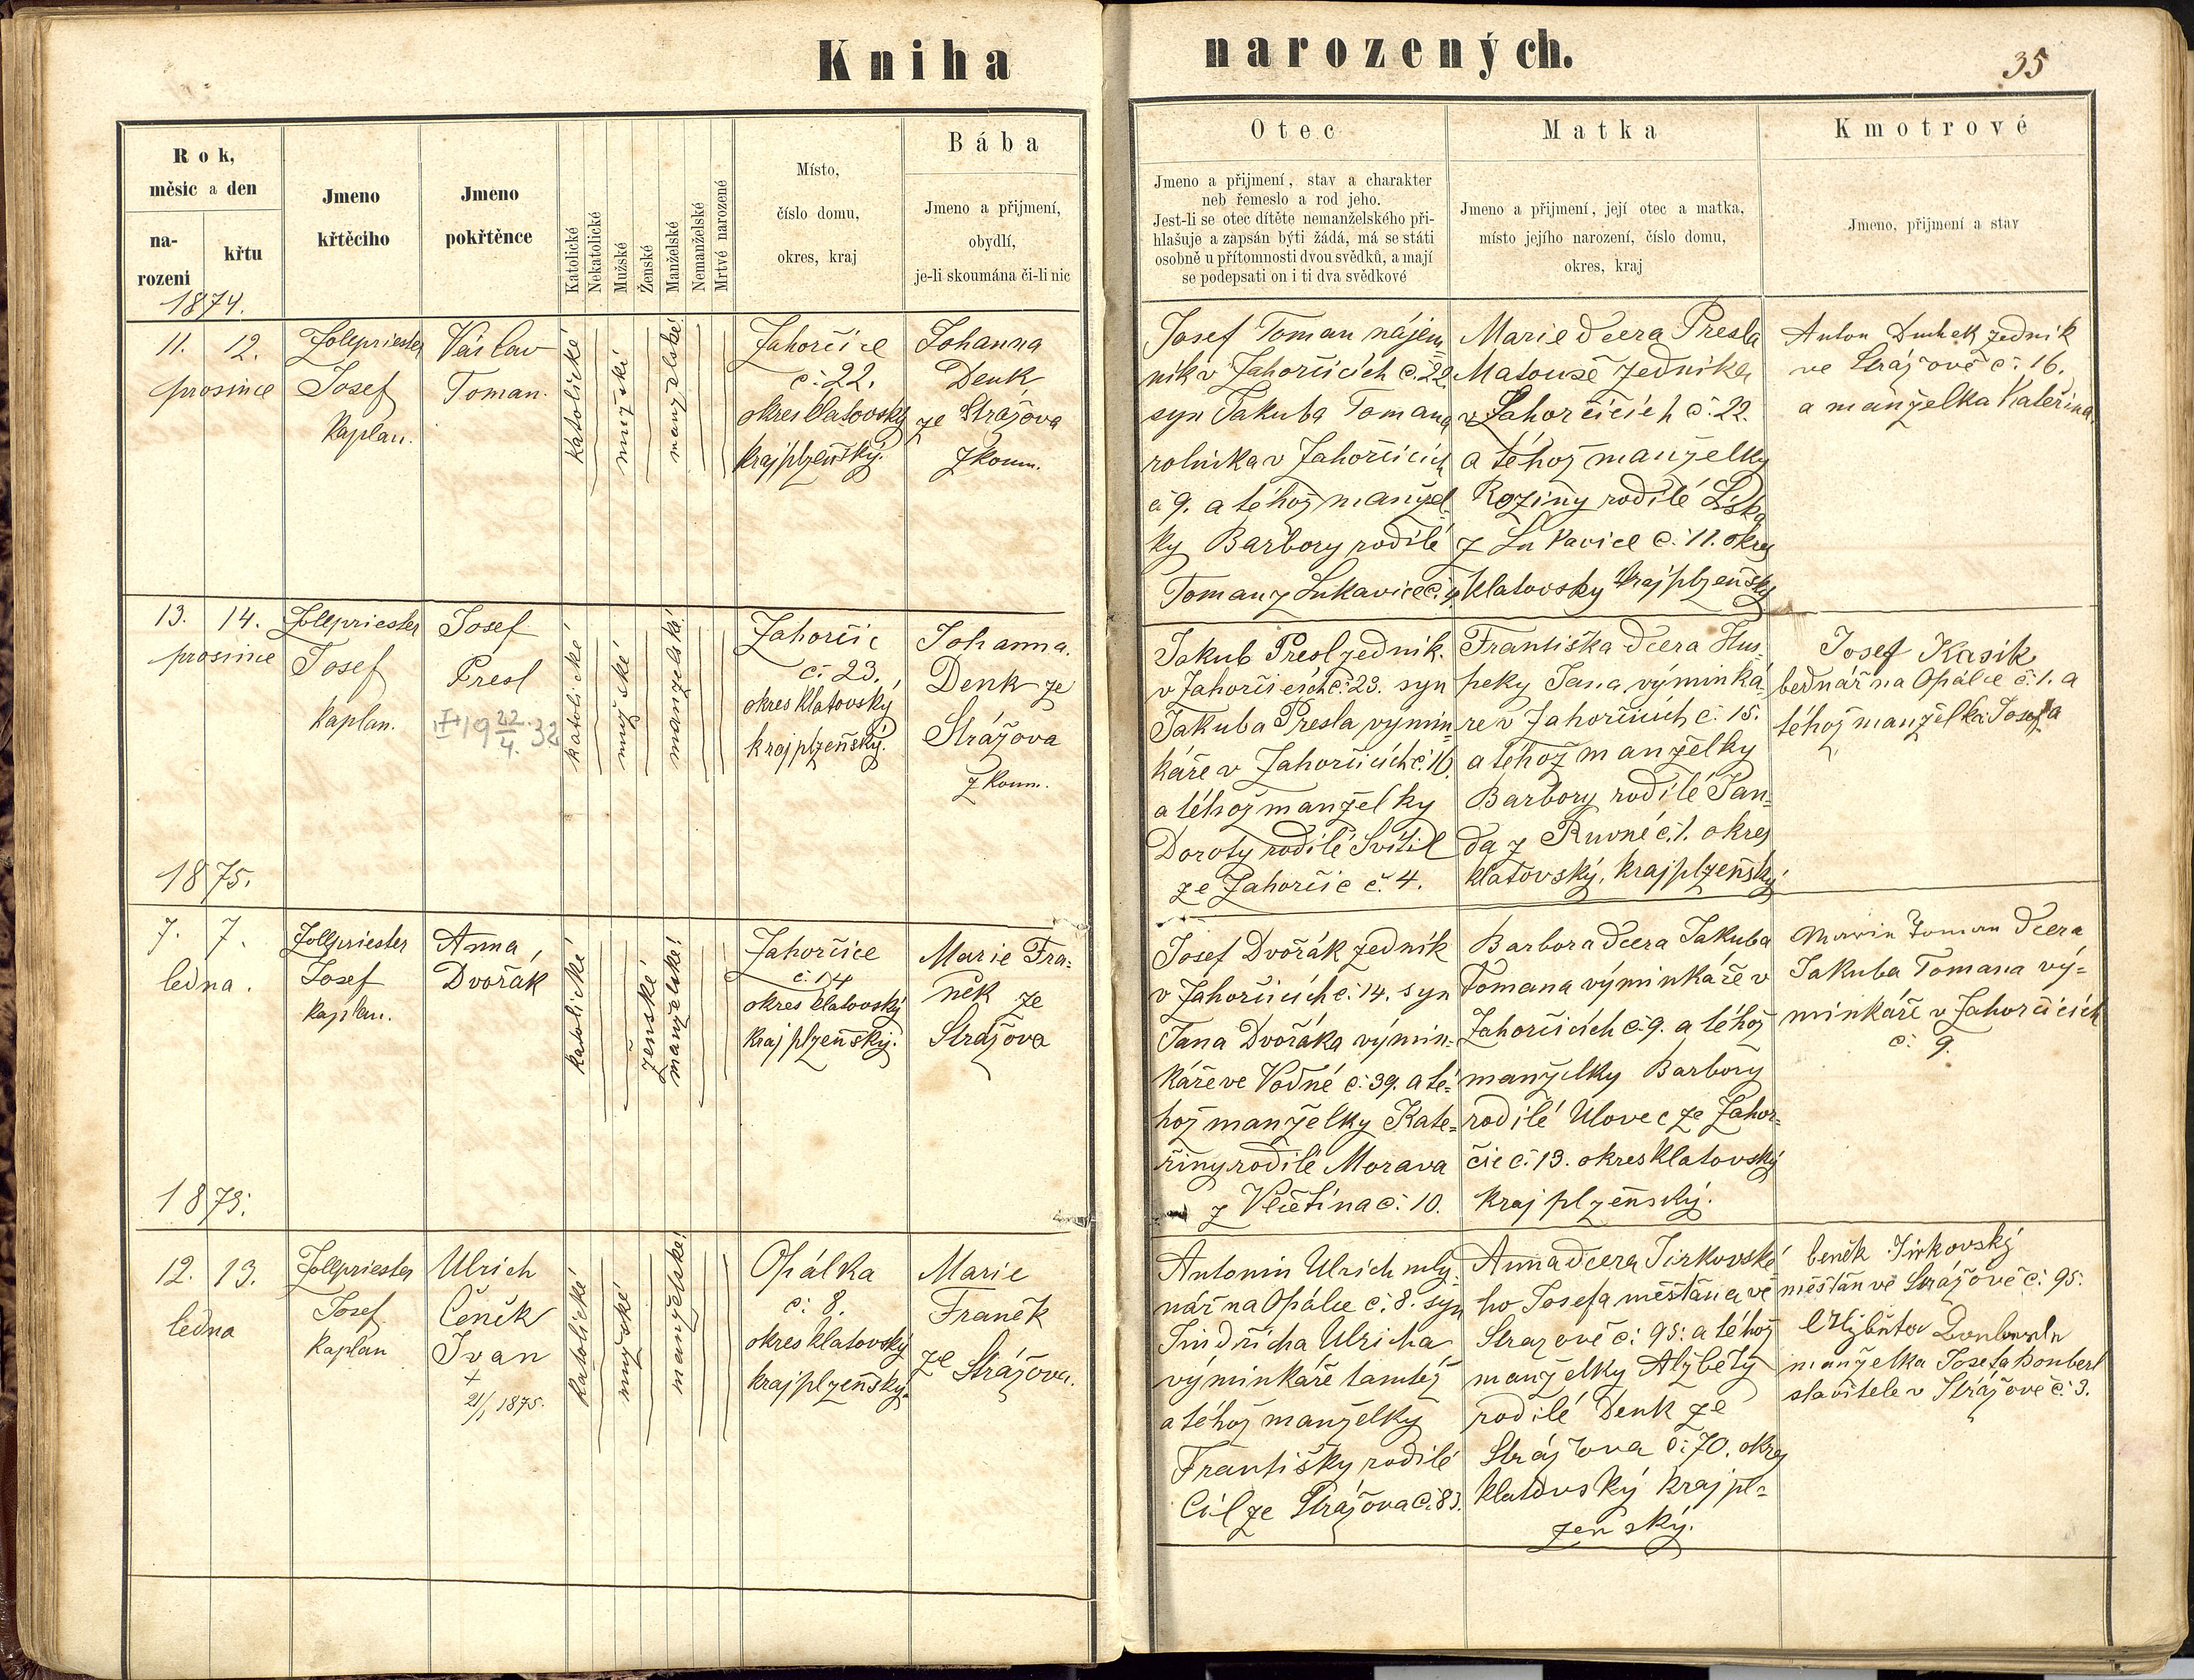 Kniha narozených.
35
Rok,
měsíc a den
na-
rozeni
křtu
Jmeno
křtěciho
Jmeno
pokřtěnce
Katolické
Nekatolické
Mužské
Ženské
Manželské
Nemanželské
Mrtvé narozené
Místo,
číslo domu,
okres, kraj
Bába
Jmeno a přijmení,
obydlí,
je-li skoumána či-li nic
Otec
Jmeno a přijmení, stav a charakter
neb řemeslo a rod jeho.
Jest-li se otec dítěte nemanželského při-
hlašuje a zapsán býti žádá, má se státi
osobně u přítomnosti dvou svědků, a mají
se podepsati on i ti dva svědkové
Matka
Jmeno a přijmení, její otec a matka,
místo jejího narození, číslo domu,
okres, kraj
Kmotrové
Jmeno, přijmení a stav
1874.
11. 12.
prosince
Zollpriester
Josef
Kaplan.
Václav
Toman.
katolické
mužské
manželské
Zahorčice
č. 22.
okres klatovský
kraj plzeňský.
Johanna
Denk
ze Strážova
zkoum.
Josef Toman nájem
ník v Zahorčicích č. 22
syn Jakuba Tomana
rolníka v Zahorčicích
č 9. a téhož manžel-
ky Barbory rodilé
Toman z Lukavice č. 4
Marie dcera Presla
Matouše zedníka
v Zahorčicích č. 22.
a téhož manželky
Roziny rodilé Liška
z Lukavice č. 11. okres
klatovský kraj plzeňský
Anton Duchek zedník
ve Strážově č. 16.
a manželka Kateřina.
13. 14.
prosince
Zollpriester
Josef
Kaplan.
Josef
Presl
22
4. 32
katolické
mužské
manželské
Zahorčic
č. 23.
okres klatovský
kraj plzeňský.
Johanna.
Denk ze
Strážova
zkoum.
Jakub Presl zedník.
v Zahorčicích č. 23. syn
Jakuba Presla výmin-
káře v Zahorčicích č. 16.
a téhož manželky
Doroty rodilé Svítil
ze Zahorčic č. 4.
Františka dcera Hus-
peky Jana výminká-
ře v Zahorčicích č. 15.
a téhož manželky
Barbory rodilé Jan-
da z Ruvné č. 1. okres
klatovský, kraj plzeňský
Josef Kasík
bednář na Opálce č. 1. a
téhož manželka Josefa
1875.
7. 7.
ledna.
Zollpriester
Josef
Kaplan.
Anna
Dvořák
katolické
ženské
manželské
Zahorčice
č. 14
okres klatovský
kraj plzeňský.
Marie Fra-
něk ze
Strážova
Josef Dvořák zedník
v Zahorčicích č. 14. syn
Jana Dvořáka výmin-
káře ve Vodné č. 39. a té-
hož manželky Kate-
řiny rodilé Morava
z Vlčetína č. 10.
Barbora dcera Jakuba
Tomana výminkáře v
Zahorčicích č. 9. a téhož
manželky Barbory
rodilé Ulovec ze Zahor-
čic č. 13. okres Klatovský
kraj plzeňský.
Marie Toman dcera
Jakuba Tomana vý-
minkáře v Zahorčicích
č. 9.
1875.
12. 13.
ledna
Zollpriester
Josef
Kaplan
Ulrich
Čeněk
Ivan
+
21/1 1875.
katolické
mužské
manželské
Opálka
č. 8.
okres klatovský
kraj plzeňský.
Marie
Franěk
ze Strážova.
Antonín Ulrich mly-
nář na Opálce č. 8. syn
Jindřicha Ulricha
výminkáře tamtéž
a téhož manželky
Františky rodilé
Cíl ze Strážova č. 83.
Anna dcera Jirkovské
ho Josefa měšťana ve
Strazově č. 95. a téhož
manželky Alžběty
rodilé Denk ze
Strážova č. 70. okres
klatovský kraj pl-
zeňský.
čeněk Jirkovský
měšťan ve Strážově č. 95.
Alžběta
manželka Josefa Donberl
stavitele v Strážově č. 3.